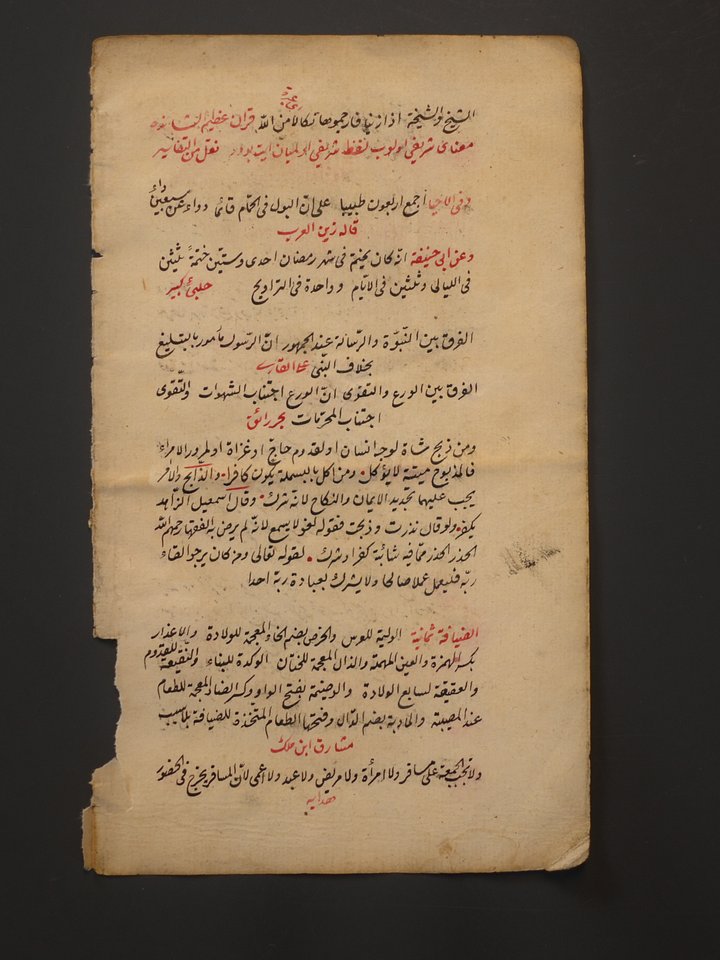 الشيخ والشيخة اذا زنيا فارجموها نكالا من الله قران عظيم
معناى شريفى اولوب لفظ شريفى ايت نقل من التفاسير
وفى الاحيا اجمع اربعون طبيبا على ان البول فى الحمام قائما دواء من سبعين داء
قاله زين العرب
وعن ابى حنيفة انه كان يختم فى شهر رمضان احدى وستين ختمة ثلثين
فى الليالى وثلثين فى الايام وواحدة فى التراويح حلبئ كبير
الفرق بين النبوة والرسالة عند الجمهور ان الرسول مأمور بالتبليغ
بخلاف النبى على القارى
الفرق بين الورع والتقوى ان الورع اجتناب الشهوات والتقوى
اجتناب المحرمات بحر رائق
ومن ذبح شاة لوجه انسان او لقدوم حاج او غزاة او لمرور الامراء
فالمذبوح ميتة لا يؤكل ومن اكل بالبسملة يكون كافرا والذابح والآمر
يجب عليهما تجديد الايمان والنكاح لانه شرك وقال اسمعيل الزاهد
يكفر ولو قال نذرت وذبحت فقوله لغو لا يسمع لانه لم يرض به الفقهاء رحمهم الله
الحذر الحذر مما فيه شائبة كفر او شرك لقوله تعالى ومن كان يرجوا لقاء
ربه فليعمل عملا صالحا ولا يشرك بعبادة ربه احدا
الضيافة ثمانية الوليمة للعرس والخرص بضم الخاء المعجمة للولادة والاعذار
بكسر الهمزة والعين المهملة والذال المعجمة للختان الوكدة للبناء والنقيعة للقدوم
والعقيقة لسابع الولادة والوضيمة بفتح الواو وكسر الضاد المعجمة للطعام
عند المصيبة والمادبة بضم الدال وفتحها الطعام المتخذة للضيافة بلا سبب
مشارق ابن ملك
ولا تجب الجمعة على مسافر ولا امرأة ولا مريض ولا عبد ولا اعمى لان المسافر يحرج فى الحضور
هدايه